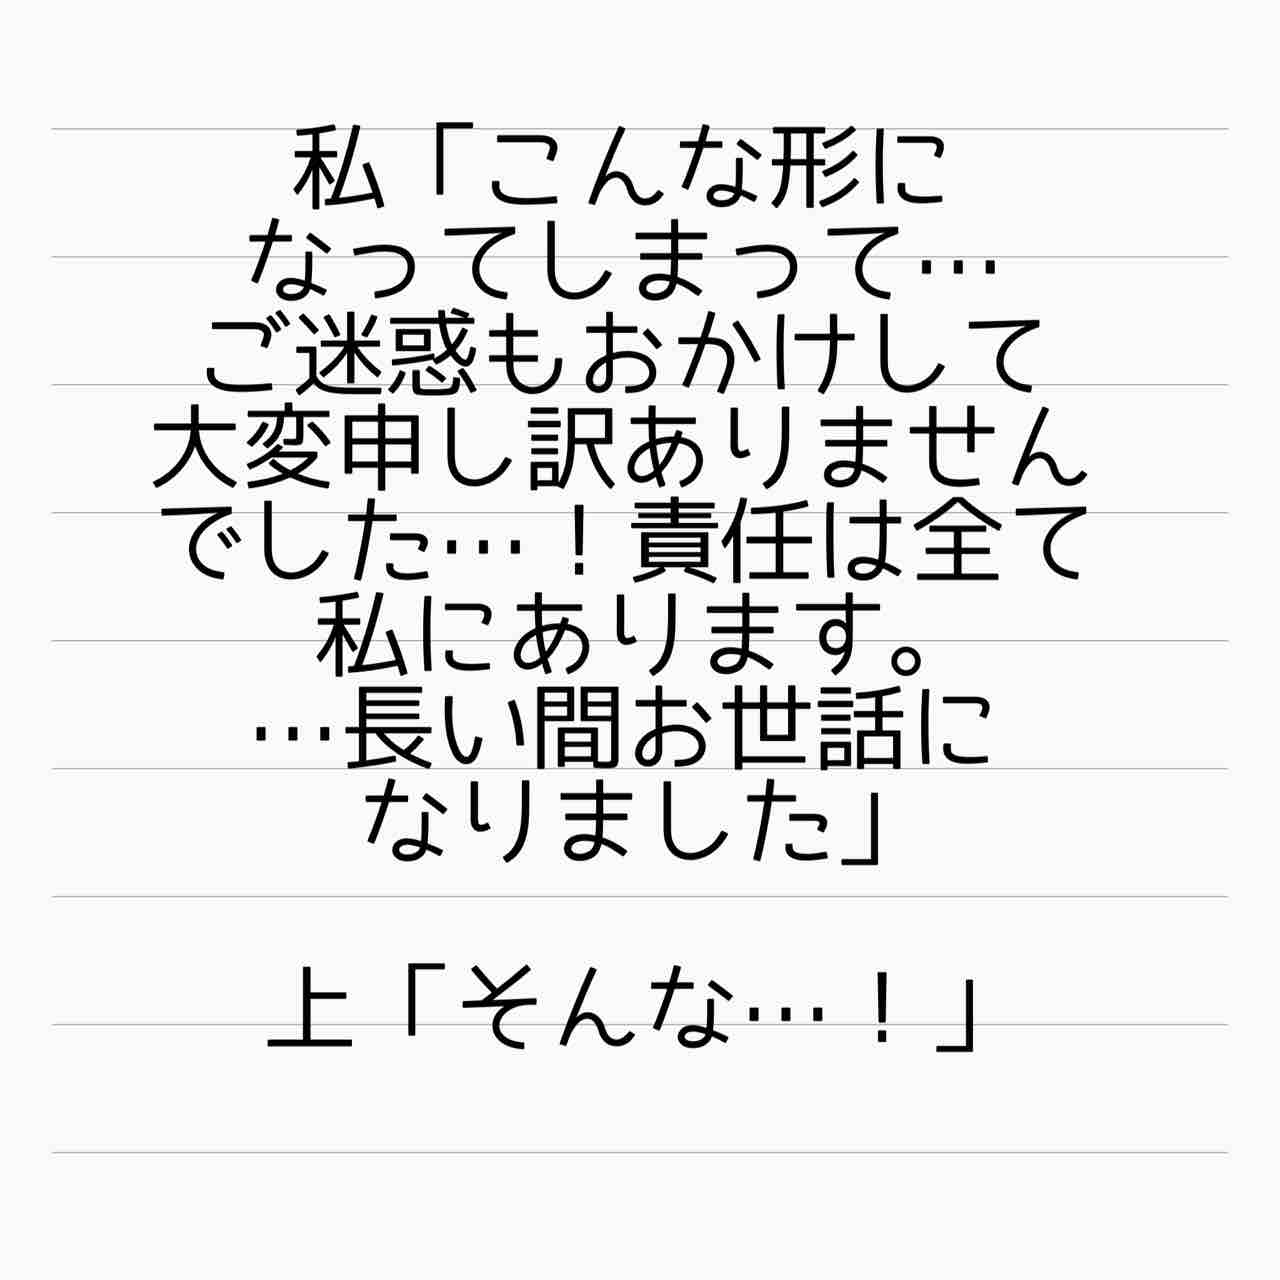 私「こんな形に
なってしまって…
ご迷惑もおかけして
大変申し訳ありません
でした…！責任は全て
私にあります。
…長い間お世話に
なりました」
上「そんな…！」